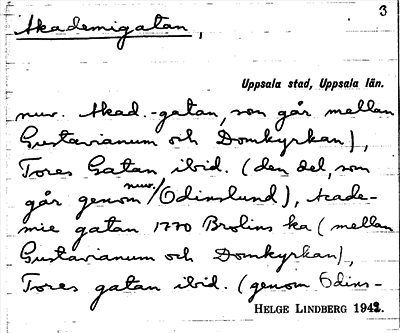 3
Akademigatan,
Uppsala stad, Uppsala län.
nuv. Akad.-gatan, som går mellan
Gustavianum och Domkyrkan),
Tores Gatan, ibid. (den del, som
går genom nuv./Odinslund), Acade-
mie gatan 1770 Brolins ka (mellan
Gustavianum och Domkyrkan),
Tores gatan ibid. (genom Odins-
HELGE LINDBERG 1942.